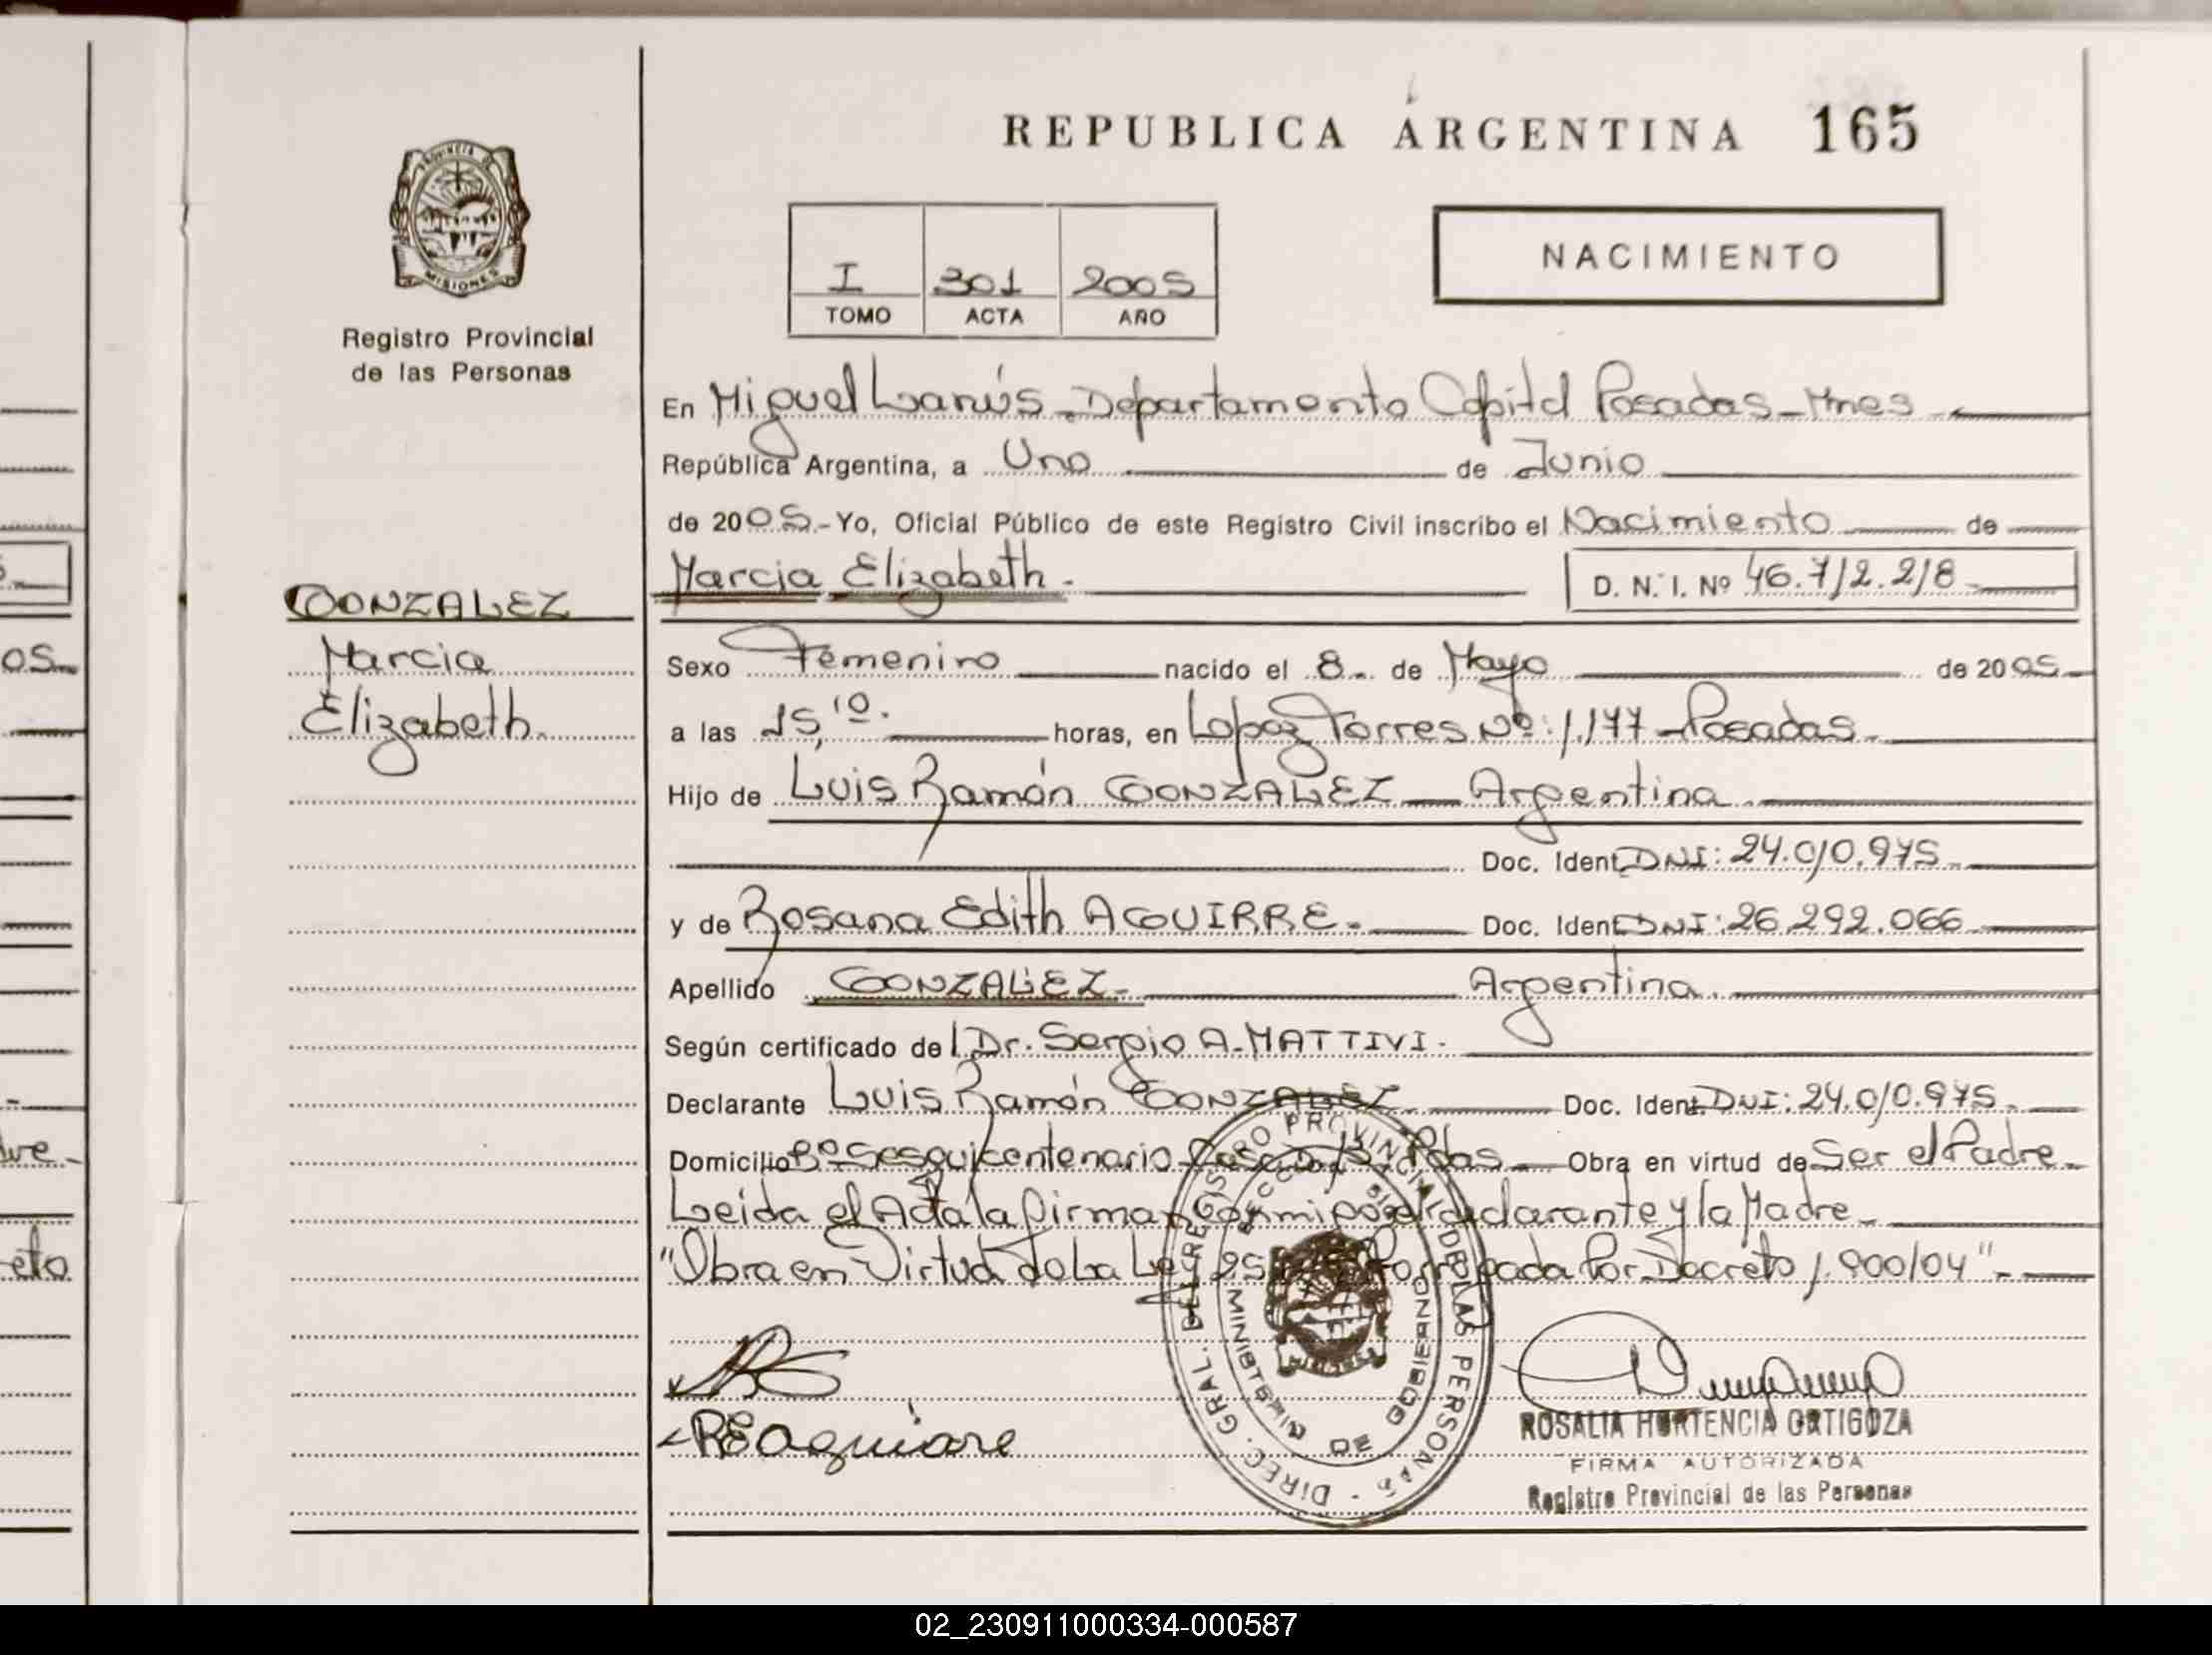 REPUBLICA ARGENTINA 165
PROVINCIA DE
MISIONES
Registro Provincial
de las Personas
I 301 2005
TOMO ACTA AÑO
NACIMIENTO
En Miguel Lanús - Departamento Capital Posadas - Mnes
República Argentina, a Uno de Junio
de 2005.- Yo, Oficial Público de este Registro Civil inscribo el Nacimiento de
GONZALEZ
Marcia
Elizabeth.
Marcia Elizabeth. D. N. I. Nº 46.712.218
Sexo Femenino nacido el 8. de Mayo de 2005
a las 15,10. horas, en Lopez Torres Nº: 1.177 - Posadas
Hijo de Luis Ramón GONZALEZ Argentina
Doc. Ident. DNI: 24.010.975
y de Rosana Edith AGUIRRE. Doc. Ident. DNI: 26.292.066
Apellido GONZALEZ Argentina.
Según certificado del Dr. Sergio A. MATTIVI.
Declarante Luis Ramón GONZALEZ Doc. Ident. DNI: 24.010.975
Domicilio Bº Sesquicentenario Pdas Obra en virtud de Ser el Padre
Leida el Acta la firman conmigo el declarante y la Madre
"Obra en Virtud de La Ley Por Decreto 1.900/04"
DIREC. GRAL. DEL REGISTRO PROVINCIAL DE LAS PERSONAS
MINISTERIO DE GOBIERNO
REAguirre
ROSALIA HORTENCIA ORTIGOZA
FIRMA AUTORIZADA
Registro Provincial de las Personas
02_230911000334-000587